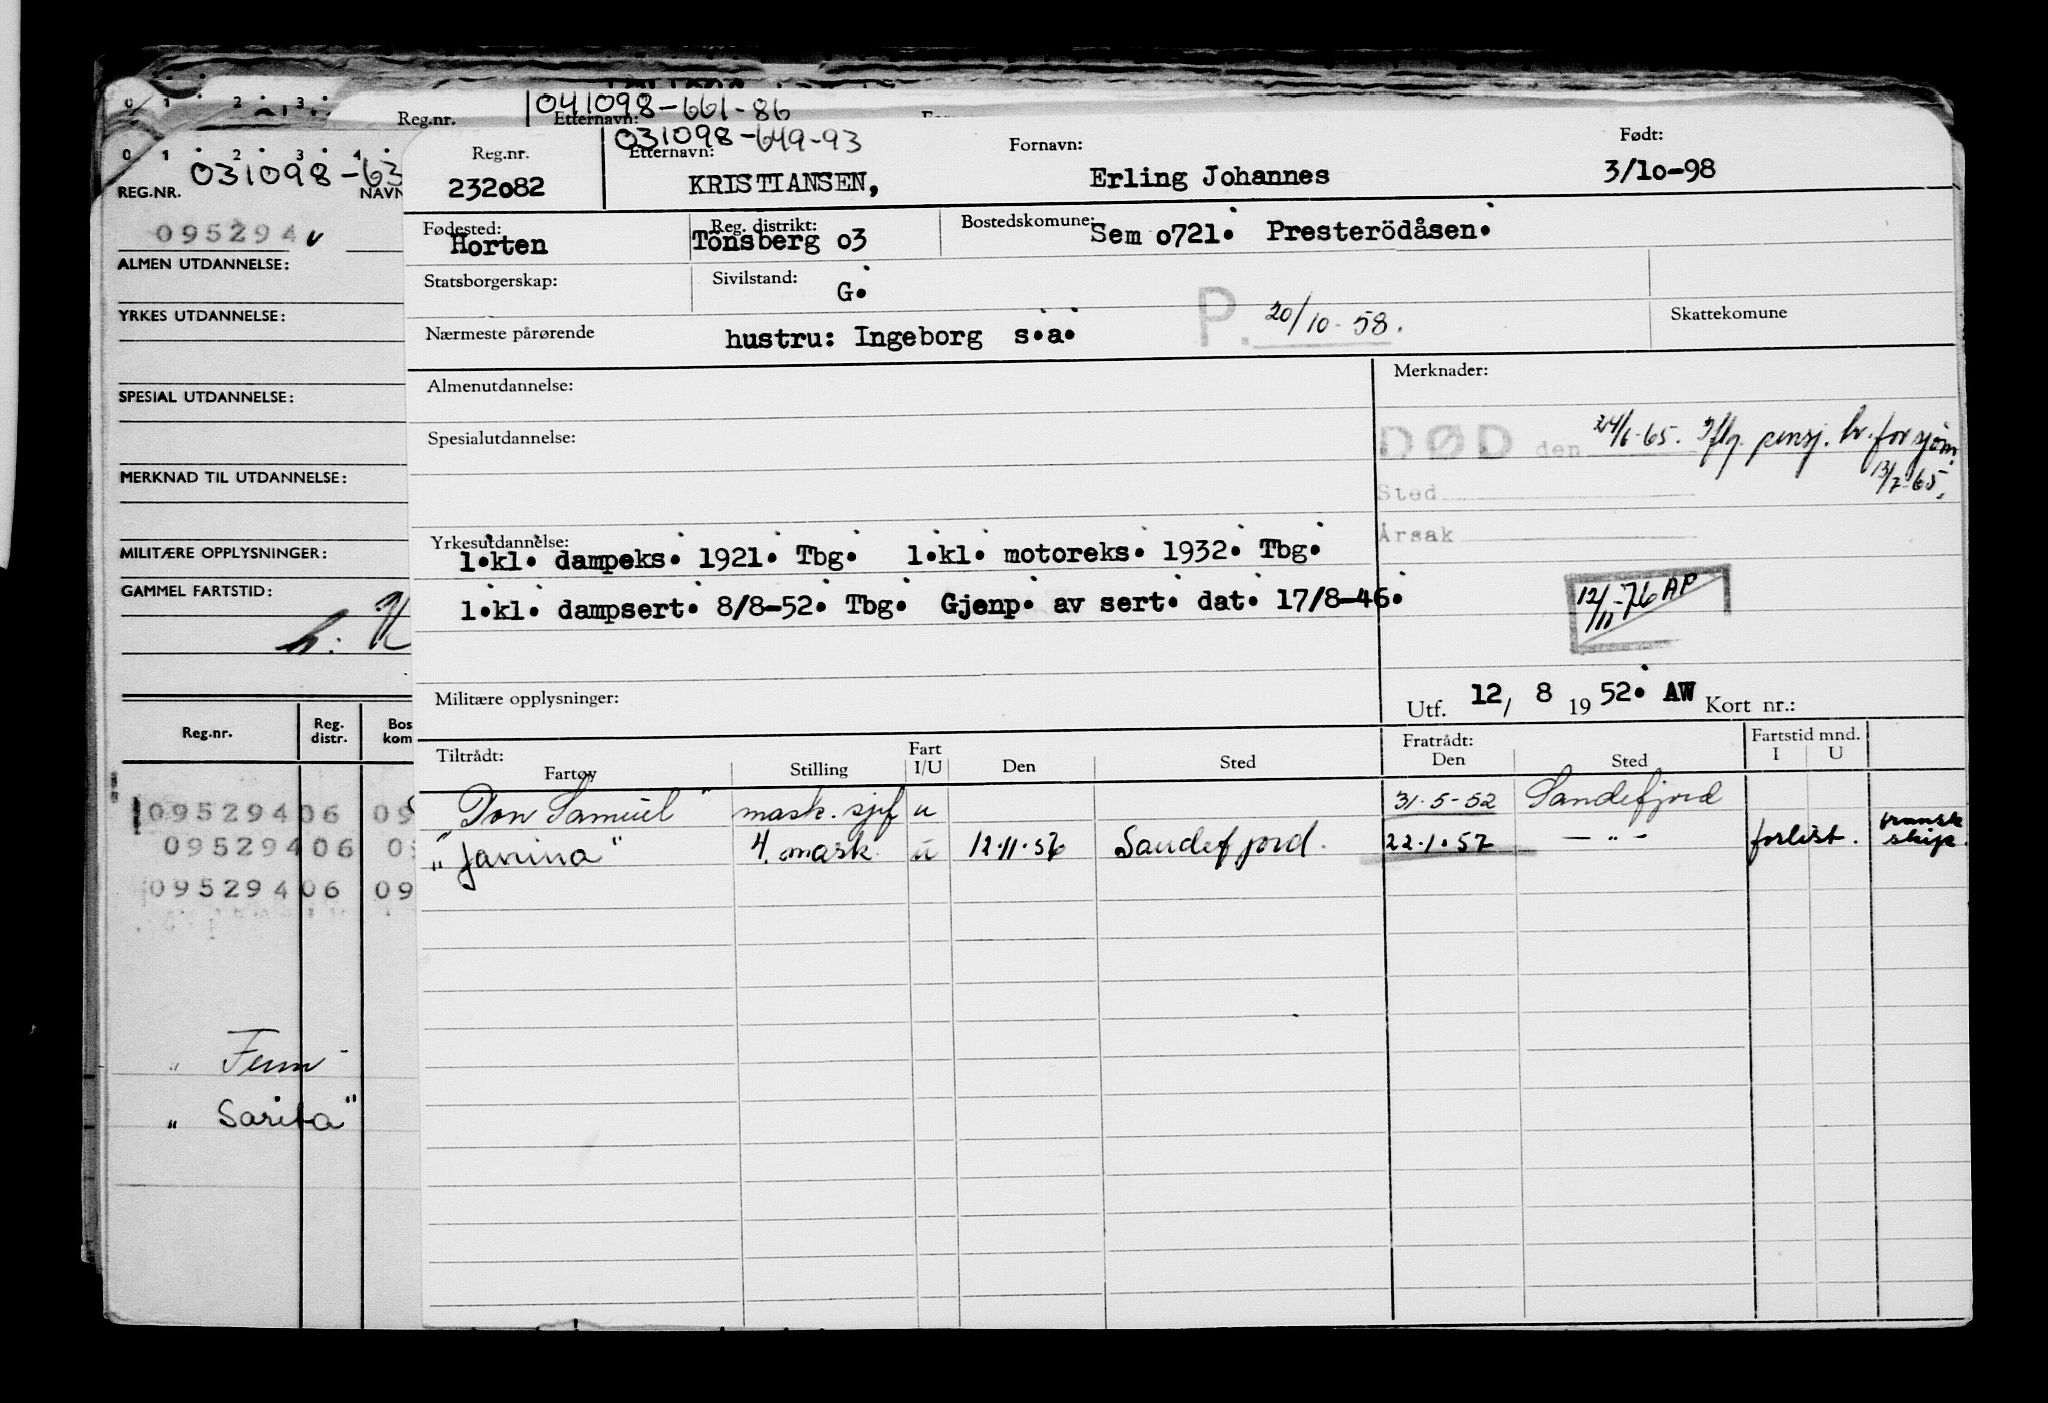 0 1 2 3
Reg.nr. 041098-661-86 Etternavn:
0 1 2 3 4
031098-63
REG.NR. NAVN
095294
ALMEN UTDANNELSE:
YRKES UTDANNELSE:
SPESIAL UTDANNELSE:
MERKNAD TIL UTDANNELSE:
MILITÆRE OPPLYSNINGER:
GAMMEL FARTSTID:
Reg.nr. Reg. distr. Bos kom
095294 06 09
095294 06 09
095294 06 09
" Fem
" Sarita"
031098-649-93
Reg.nr. Etternavn: Fornavn: Født:
232o82 KRISTIANSEN, Erling Johannes 3/1o-98
Fødested: Reg. distrikt: Bostedskomune:
Horten Tönsberg o3 Sem o721. Presterödåsen.
Statsborgerskap: Sivilstand: G.
Nærmeste pårørende hustru: Ingeborg s.a. P. 20/10-58. Skattekomune
Almenutdannelse: Merknader:
Spesialutdannelse: DØD den 24/6-65. Iflg. pensj. br. for sjöm.
13/7-65.
Sted
Årsak
Yrkesutdannelse:
1.kl. dampeks. 1921. Tbg. 1.kl. motoreks. 1932. Tbg.
1.kl. dampsert. 8/8-52. Tbg. Gjenp. av sert. dat. 17/8-46.
12/11-76 AP
Militære opplysninger: Utf. 12/ 8 19 52. AW Kort nr.:
Tiltrådt: Fratrådt: Fartstid mnd.
Fartøy Stilling Fart I/U Den Sted Den Sted I U
"Don Samuel" mask. sjef u 31-5-52 Sandefjord
"Janina" 4. mask. u 12.11.56 Sandefjord. 22.1.57 — " — forlist. fransk skip.